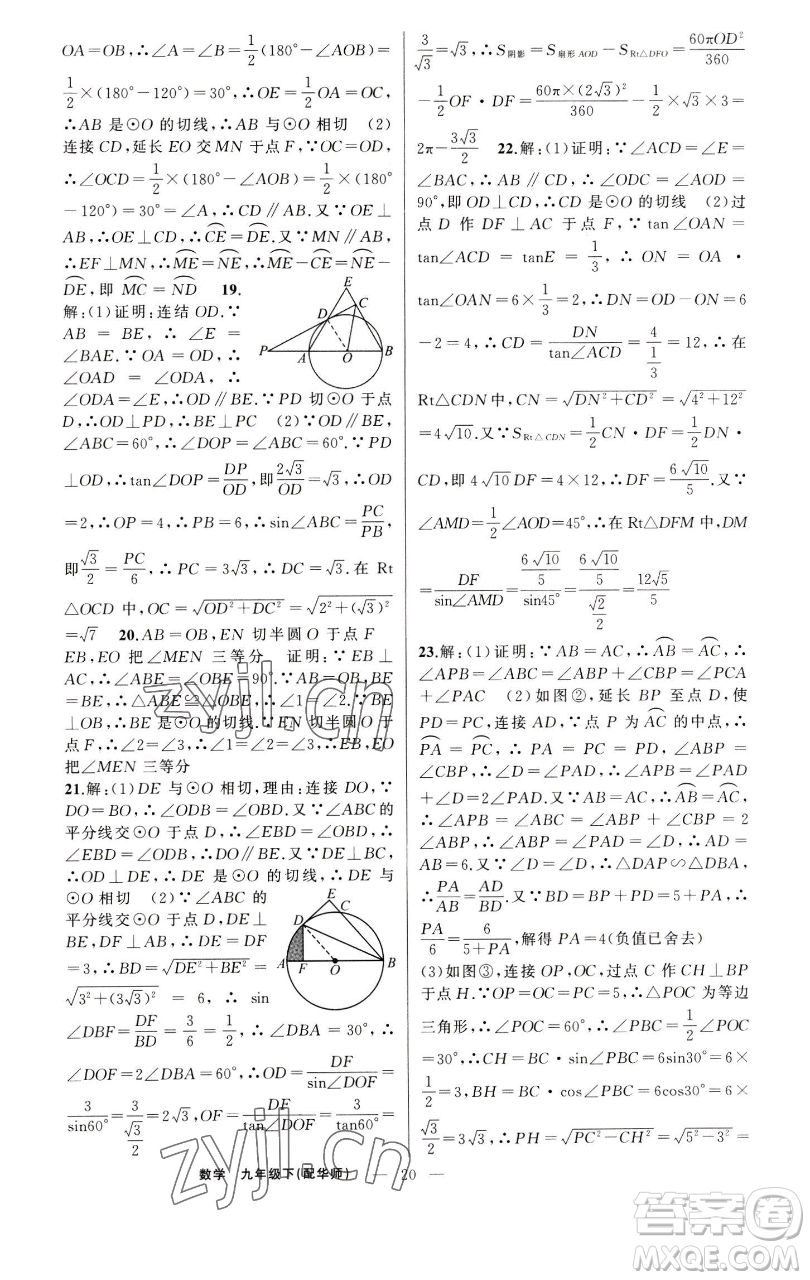 OA=OB,∴∠A=∠B=1/2(180°-∠AOB)=
1/2×(180°-120°)=30°,∴OE=1/2OA=OC,
∴AB 是⊙O的切线,∴AB 与⊙O 相切 (2)
连接 CD,延长 EO 交 MN 于点 F,∵OC=OD,
∴∠OCD=1/2×(180°-∠AOB)=1/2×(180°
-120°)=30°=∠A,∴CD∥AB.又∵OE⊥
AB,∴OE⊥CD,∴⌒CE=⌒DE.又∵MN∥AB,
∴EF⊥MN,∴⌒ME=⌒NE,∴⌒ME-⌒CE=⌒NE-
⌒DE,即 ⌒MC=⌒ND 19.
解:(1)证明:连结 OD.∵
AB = BE,∴ ∠E =
∠BAE.∵OA=OD,∴
∠OAD =∠ODA,∴
∠ODA=∠E,∴OD∥BE.∵PD 切⊙O 于点
D,∴OD⊥PD,∴BE⊥PC (2)∵OD∥BE,
∠ABC=60°,∴∠DOP=∠ABC=60°.∵PD
⊥OD,∴tan∠DOP=DP/OD,即2√3/OD=√3,∴OD
=2,∴OP=4,∴PB=6,∴sin∠ABC=PC/PB,
即√3/2=PC/6,∴PC=3√3,∴DC=√3.在 Rt
△OCD 中,OC=√(OD²+DC²)=√(2²+(√3)²)
=√7 20.AB=OB,EN 切半圆 O 于点 F
EB,EO 把∠MEN 三等分 证明:∵EB⊥
AC,∴∠ABE=∠OBE=90°.∵AB=OB,BE
=BE,∴△ABE≌△OBE,∴∠1=∠2.∵BE
⊥OB,∴BE是⊙O的切线.∵EN 切半圆 O 于
点 F,∴∠2=∠3,∴∠1=∠2=∠3,∴EB,EO
把∠MEN 三等分
21.解:(1)DE 与⊙O 相切,理由:连接 DO,∵
DO=BO,∴∠ODB=∠OBD.又∵∠ABC 的
平分线交⊙O 于点 D,∴∠EBD=∠OBD,∴
∠EBD=∠ODB,∴DO∥BE.又∵DE⊥BC,
∴OD⊥DE,∴DE 是⊙O 的切线,∴DE 与
⊙O 相切 (2)∵∠ABC 的
平分线交⊙O 于点 D,DE⊥
BE,DF⊥AB,∴DE=DF
=3,∴BD=√(DE²+BE²)=
√(3²+(3√3)²) = 6,∴ sin
∠DBF=DF/BD=3/6=1/2,∴∠DBA=30°,∴
∠DOF=2∠DBA=60°,∴OD=DF/sin∠DOF=
3/sin60°=3/(√3/2)=2√3,OF=DF/tan∠DOF=3/tan60°=
3/√3=√3,∴S阴影=S扇形AOD-SRt△DFO=60πOD²/360
-1/2OF·DF=60π×(2√3)²/360-1/2×√3×3=
2π-3√3/2 22.解:(1)证明:∵∠ACD=∠E=
∠BAC,∴∠ODC=∠AOD=
90°,即OD⊥CD,∴CD 是⊙O的切线 (2)过
点 D 作 DF⊥AC 于点 F,∵tan∠OAN=
tan∠ACD = tanE = 1/3,∴ON = OA·
tan∠OAN=6×1/3=2,∴DN=OD-ON=6
-2=4,∴CD=DN/tan∠ACD=4/(1/3)=12,∴在
Rt△CDN中,CN=√(DN²+CD²)=√(4²+12²)
=4√10.又∵SRt△CDN=1/2CN·DF=1/2DN·
CD,即 4√10DF=4×12,∴DF=6√10/5.又∵
∠AMD=1/2∠AOD=45°,∴在 Rt△DFM 中,DM
=DF/sin∠AMD=(6√10/5)/sin45°=(6√10/5)/(√2/2)=12√5/5
23.解:(1)证明:∵AB=AC,∴⌒AB=⌒AC,∴
∠APB=∠ABC=∠ABP+∠CBP=∠PCA
+∠PAC (2)如图②,延长 BP 至点 D,使
PD=PC,连接 AD,∵点 P 为⌒AC的中点,∴
⌒PA=⌒PC,∴PA=PC=PD,∠ABP=
∠CBP,∴∠D=∠PAD,∴∠APB=∠PAD
+∠D=2∠PAD.又∵AB=AC,∴⌒AB=⌒AC,
∴∠APB=∠ABC=∠ABP+∠CBP=2
∠ABP,∴∠ABP=∠PAD=∠D,∴AD=
AB=6.又∵∠D=∠D,∴△DAP∽△DBA,
∴PA/AB=AD/BD.又∵BD=BP+PD=5+PA,∴
PA/6=6/(5+PA),解得 PA=4(负值已舍去)
(3)如图③,连接 OP,OC,过点 C 作 CH⊥BP
于点 H.∵OP=OC=PC=5,∴△POC 为等边
三角形,∴∠POC=60°,∴∠PBC=1/2∠POC
=30°,∴CH=BC·sin∠PBC=6sin30°=6×
1/2=3,BH=BC·cos∠PBC=6cos30°=6×
√3/2=3√3,∴PH=√(PC²-CH²)=√(5²-3²)=
E
D
C
P
A
O
B
E
C
D
A
F
O
B
数学 九年级下(配华师) — 20 —
zyjl.cn
zyjl.cn
答案圈
MXQE.COM